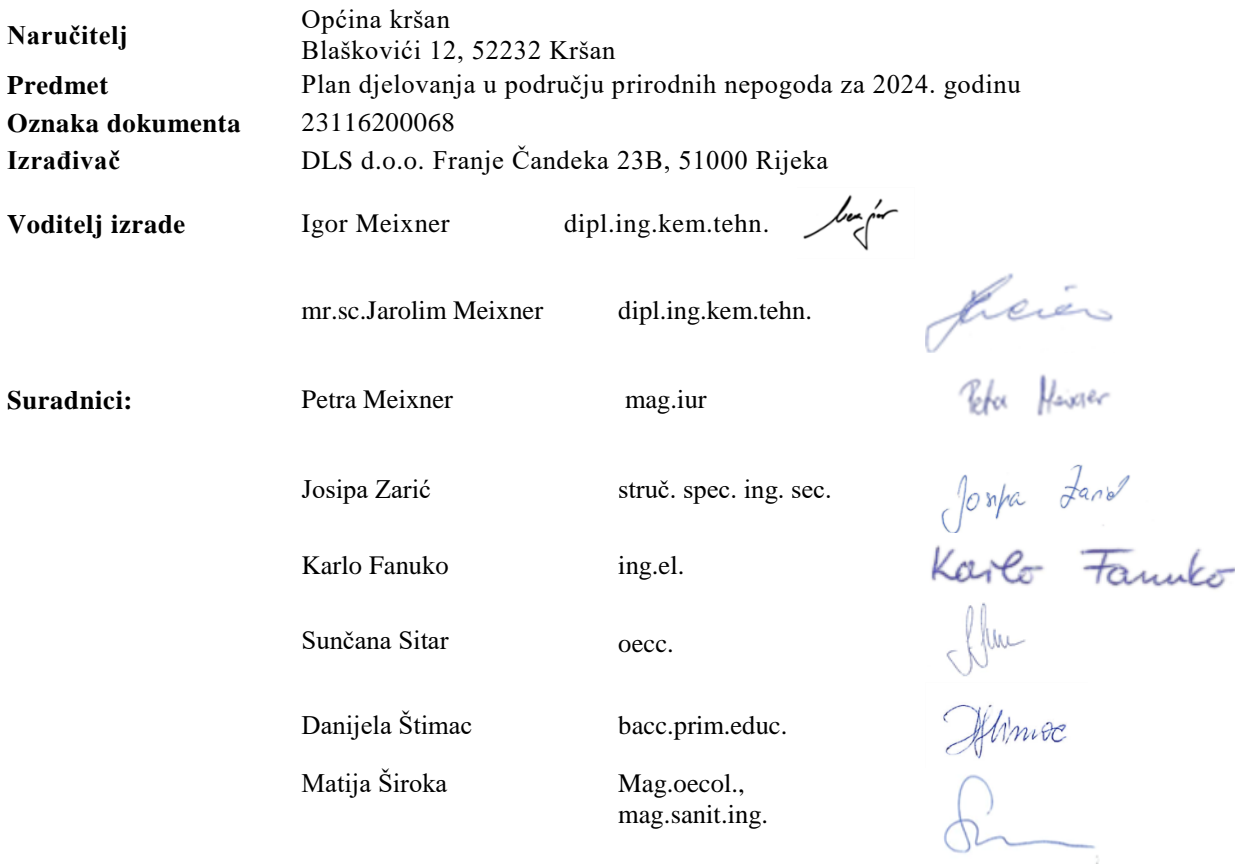 Naručitelj Općina kršan
Blaškovići 12, 52232 Kršan
Predmet Plan djelovanja u području prirodnih nepogoda za 2024. godinu
Oznaka dokumenta 23116200068
Izrađivač DLS d.o.o. Franje Čandeka 23B, 51000 Rijeka
Voditelj izrade Igor Meixner dipl.ing.kem.tehn.
mr.sc.Jarolim Meixner dipl.ing.kem.tehn.
Suradnici: Petra Meixner mag.iur Petra Meixner
Josipa Zarić struč. spec. ing. sec. Josipa Zarić
Karlo Fanuko ing.el. Karlo Fanuko
Sunčana Sitar oecc.
Danijela Štimac bacc.prim.educ. DŠtimac
Matija Široka Mag.oecol.,
mag.sanit.ing.